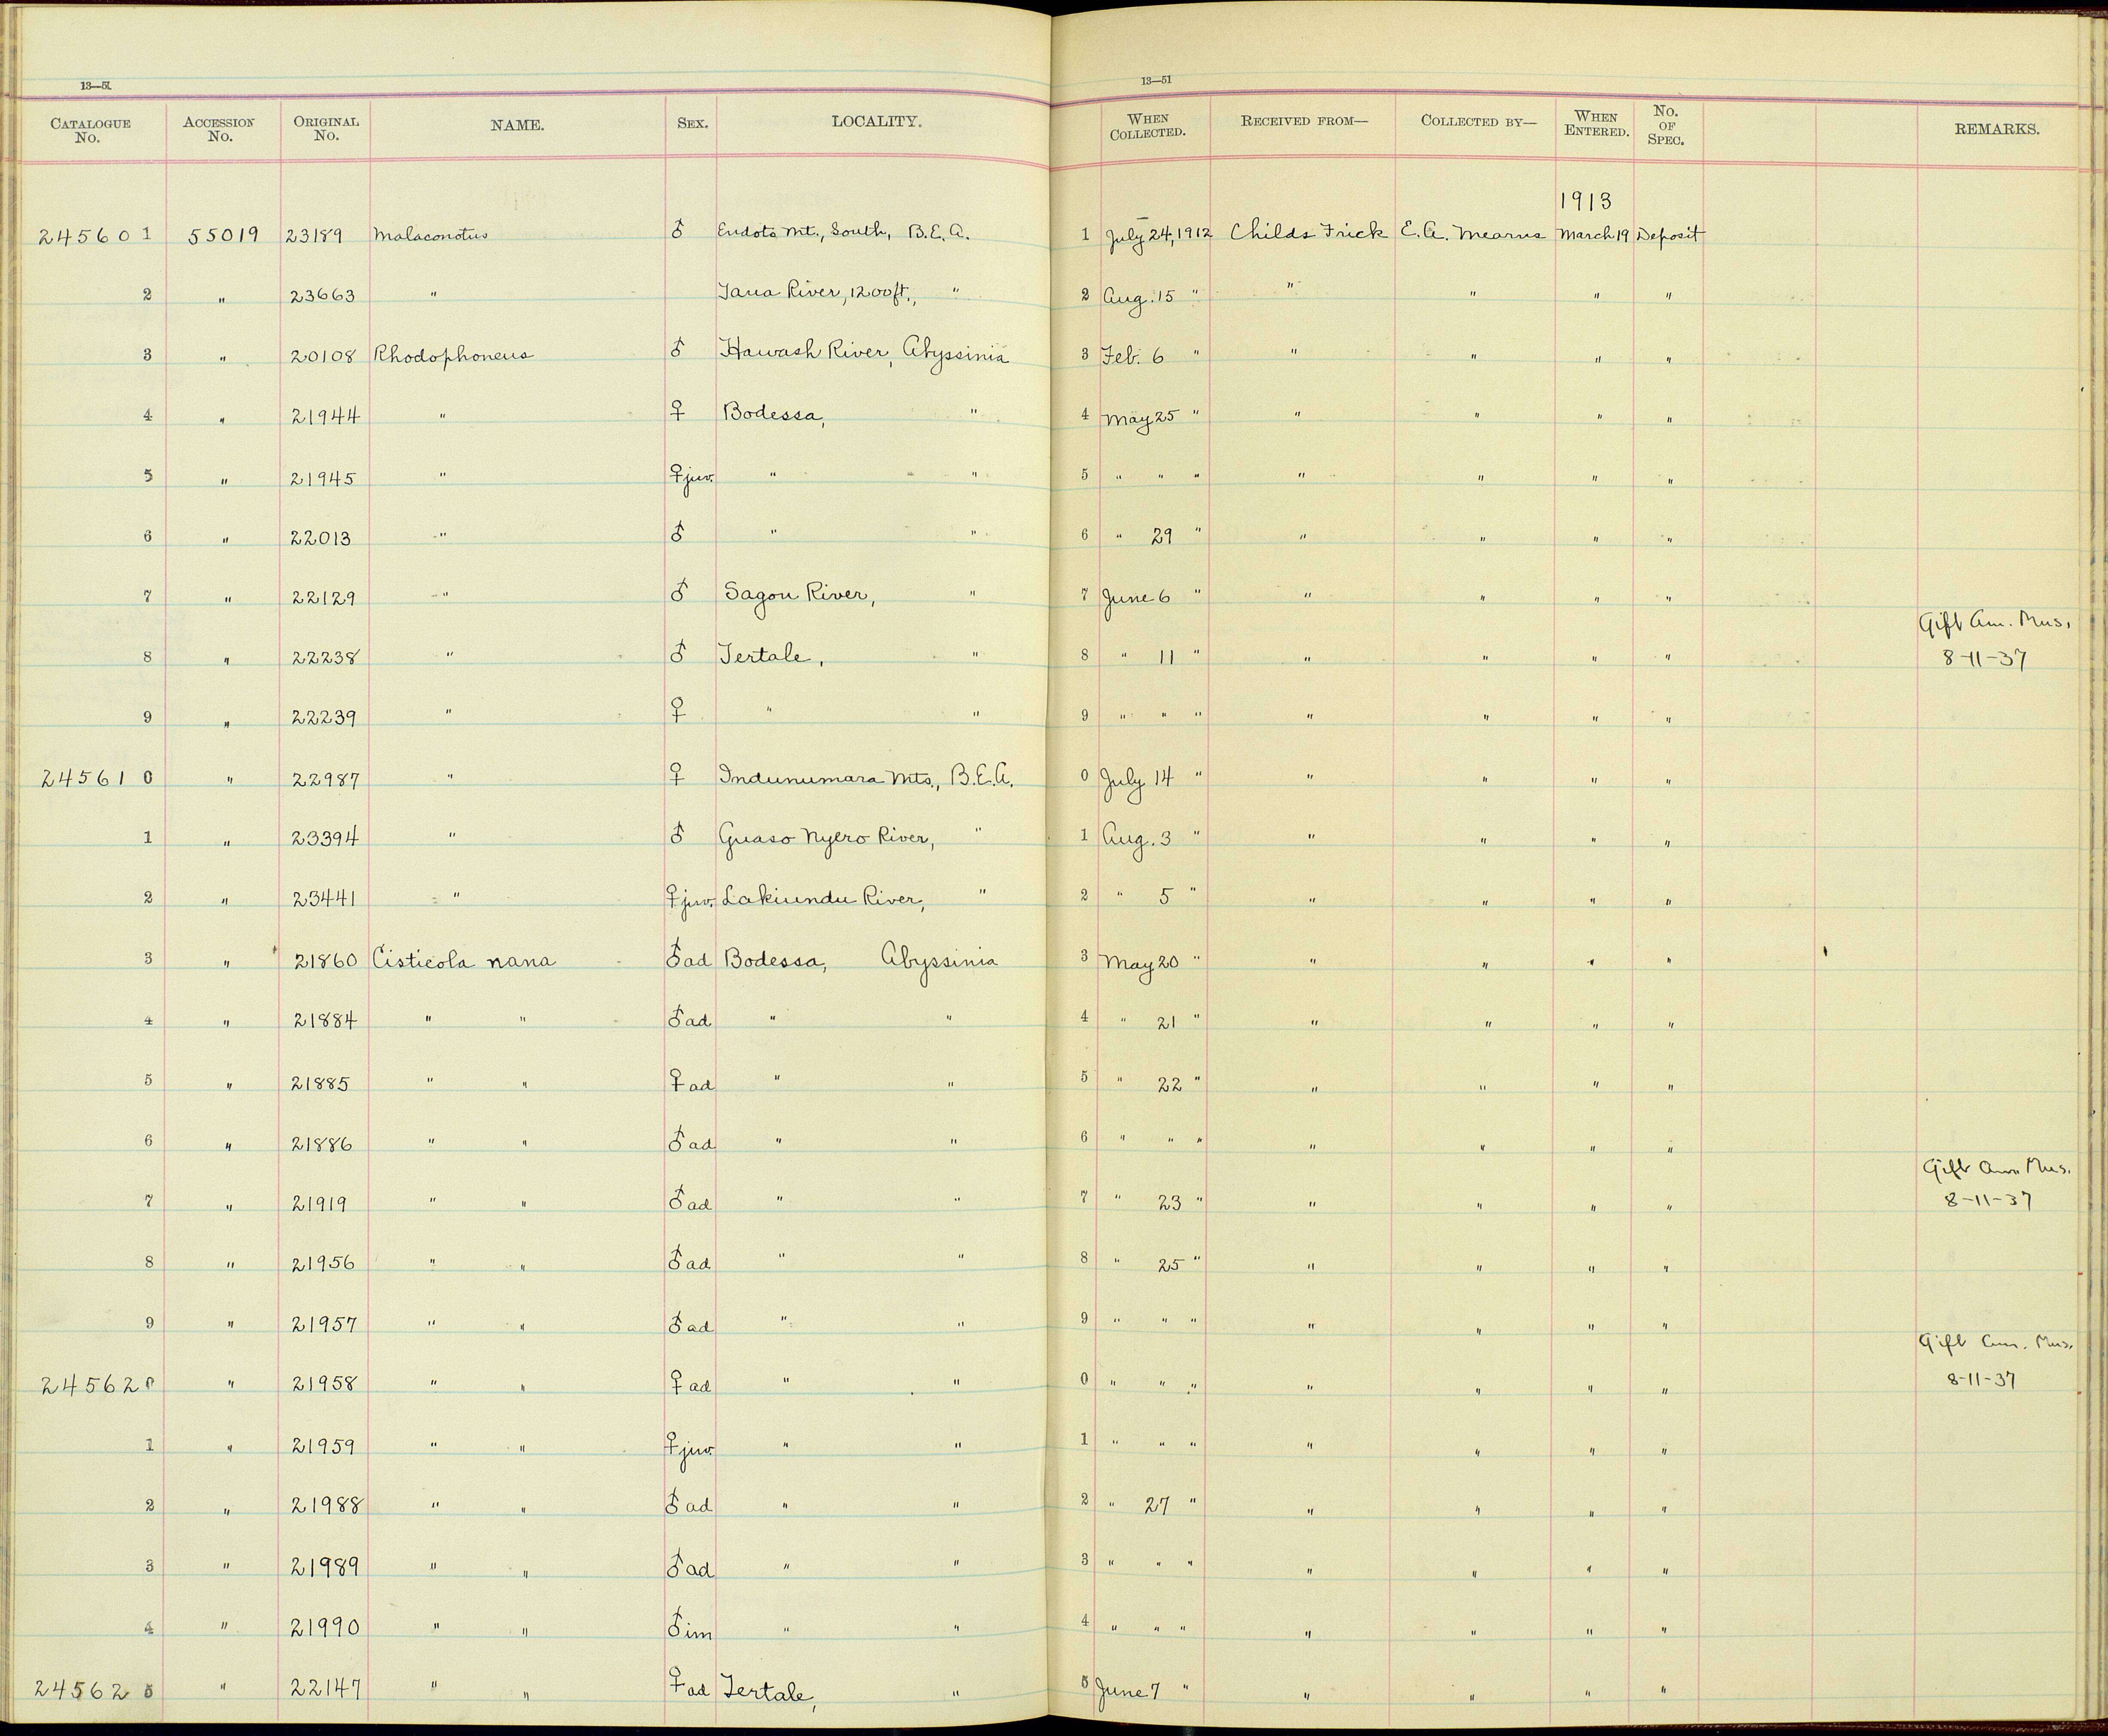 13—51
13—51
CATALOGUE No. ACCESSION No. ORIGINAL No. NAME. SEX. LOCALITY. WHEN COLLECTED. RECEIVED FROM— COLLECTED BY— WHEN ENTERED. No. OF SPEC. REMARKS.
1913
245601 55019 23189 Malaconotus ♂ Endoto Mt., South, B.E.A. 1 July 24, 1912 Childs Frick E. A. Mearns March 19 Deposit
2 " 23663 " Tana River, 1200 ft., " 2 Aug. 15 " " " " "
3 " 20108 Rhodophoneus ♂ Hawash River, Abyssinia 3 Feb. 6 " " " " "
4 " 21944 " ♀ Bodessa, " 4 May 25 " " " " "
5 " 21945 " ♀ juv. " " 5 " " " " " " "
6 " 22013 " ♂ " " 6 " 29 " " " " "
7 " 22129 " ♂ Sagon River, " 7 June 6 " " " " "
Gift Am. Mus.
8 " 22238 " ♂ Tertale, " 8 " 11 " " " " " 8-11-37
9 " 22239 " ♀ " " 9 " " " " " " "
245610 " 22987 " ♀ Indunumara Mts., B.E.A. 0 July 14 " " " " "
1 " 23394 " ♂ Guaso Nyero River, " 1 Aug. 3 " " " " "
2 " 23441 " ♀ juv. Lakiundu River, " 2 " 5 " " " " "
3 " 21860 Cisticola nana ♂ ad Bodessa, Abyssinia 3 May 20 " " " " "
4 " 21884 " " ♂ ad " " 4 " 21 " " " " "
5 " 21885 " " ♀ ad " " 5 " 22 " " " " "
6 " 21886 " " ♂ ad " " 6 " " " " " " "
Gift Am. Mus.
7 " 21919 " " ♂ ad " " 7 " 23 " " " " " 8-11-37
8 " 21956 " " ♂ ad " " 8 " 25 " " " " "
9 " 21957 " " ♂ ad " " 9 " " " " " " "
Gift Am. Mus.
245620 " 21958 " " ♀ ad " " 0 " " " " " " " 8-11-37
1 " 21959 " " ♀ juv. " " 1 " " " " " " "
2 " 21988 " " ♂ ad " " 2 " 27 " " " " "
3 " 21989 " " ♂ ad " " 3 " " " " " " "
4 " 21990 " " ♂ im " " 4 " " " " " " "
245625 " 22147 " " ♀ ad Tertale, " 5 June 7 " " " " "